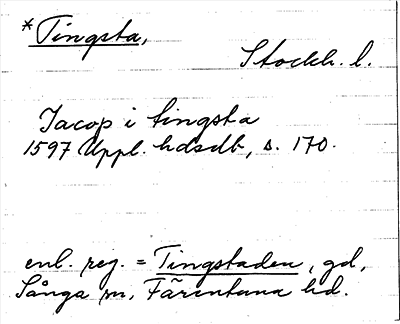 *Tingsta,
Stockh. l.
Jacop i tingsta
1597 Uppl. hdsdb, s. 170.
enl. reg. = Tingstaden, gd,
Sånga sn, Färentuna hd.